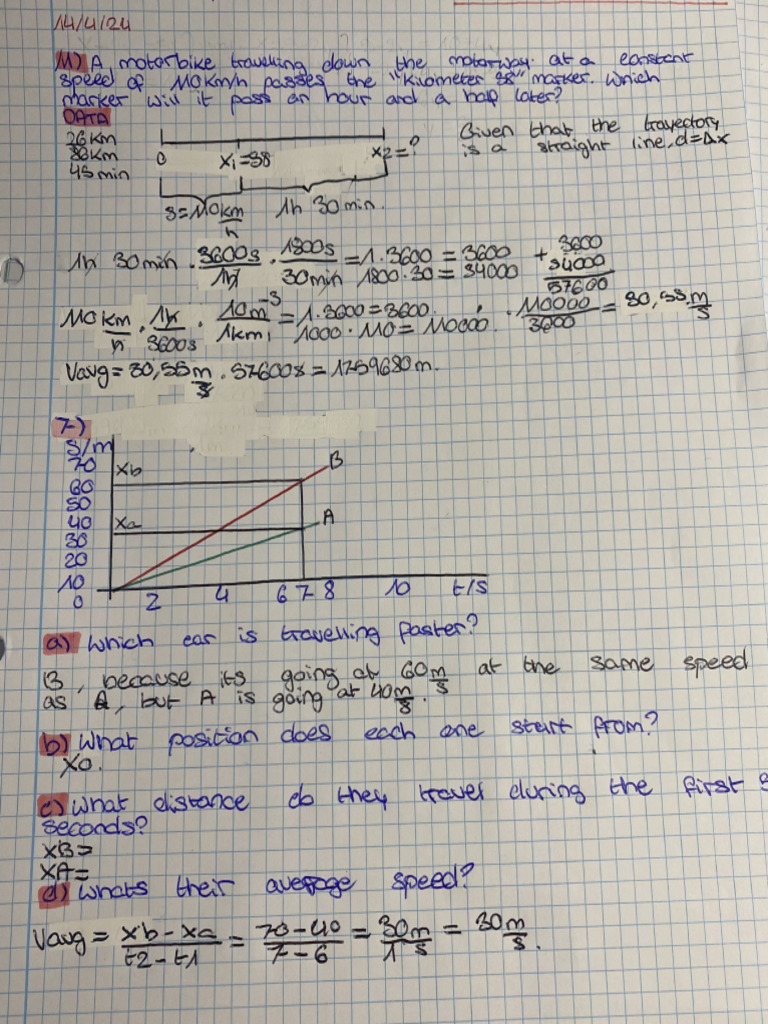 14/4/24
11) A motorbike travelling down the motorway at a constant
speed of 110km/h passes the "Kilometer 38" marker. Which
marker will it pass an hour and a half later?
DATA
26km
38km
45min
0 x1=38 x2=?
Given that the trayectory
is a straight line, d=Δx
s=110km/h 1h 30min.
1h 30min · 3600s/1h · 1800s/30min = 1·3600 = 3600 + 3600
1800·30 = 54000 54000
57600
110km/h · 1h/3600s · 10m⁻³/1km = 1·3600=3600. · 110000/3600 = 30,55 m/s
1000·110=110000.
Vavg = 30,55 m/s · 57600s = 1759680m.
7)
S/m
70
60
50
40
30
20
10
0
xb
xa
B
A
2 4 6 7 8 10 t/s
a) Which car is travelling faster?
B, because its going at 60m/s at the same speed
as A, but A is going at 40m/s.
b) What position does each one start from?
X0.
c) What distance do they travel during the first
seconds?
XB=
XA=
d) Whats their average speed?
Vavg = xb-xa/t2-t1 = 70-40/7-6 = 30m/1 s = 30m/s.